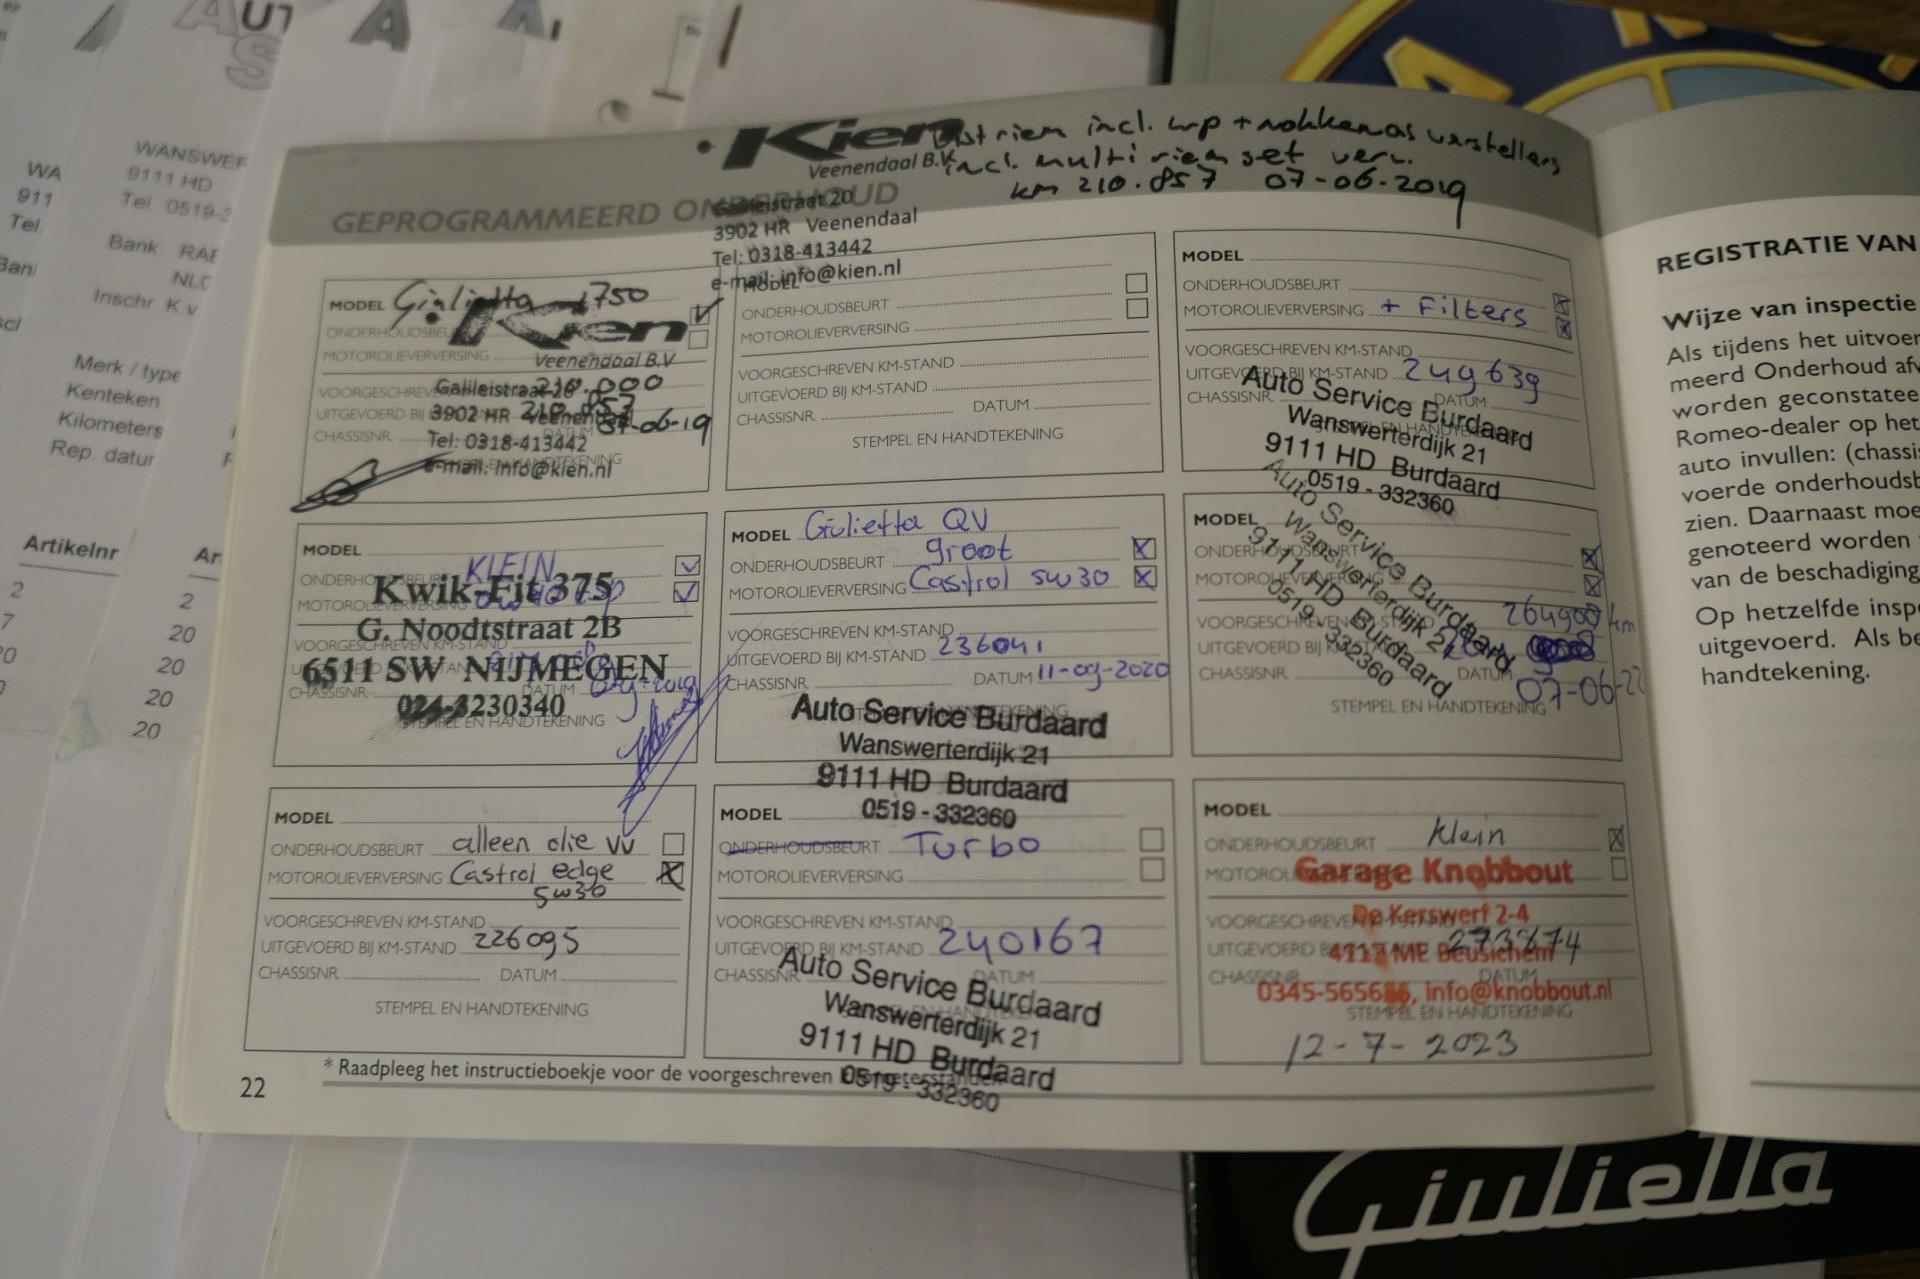 AUT
S
WANSWER
9111 HD
Tel 0519-3
WA
911
Tel
Bank RAB
NLC
Inschr K.v
Merk / type
Kenteken
Kilometers
Rep. datum
Artikelnr
2
2
7
20
20
20
20
20
Kien
Veenendaal B.V.
Galileistraat 20
3902 HR Veenendaal
Tel: 0318-413442
e-mail: info@kien.nl
Dist riem incl. wp + nokkenas verstellers
incl. multi riem set verv.
km 210.857 07-06-2019
GEPROGRAMMEERD ONDERHOUD
MODEL Giulietta 1750
ONDERHOUDSBEURT
MOTOROLIEVERVERSING
Kien
Veenendaal B.V.
VOORGESCHREVEN 210.000
UITGEVOERD BIJ 210.857
CHASSISNR. DATUM 07-06-19
Galileistraat 20
3902 HR Veenendaal
Tel: 0318-413442
e-mail: info@kien.nl
MODEL
ONDERHOUDSBEURT
MOTOROLIEVERVERSING
VOORGESCHREVEN KM-STAND
UITGEVOERD BIJ KM-STAND
CHASSISNR. DATUM
STEMPEL EN HANDTEKENING
MODEL
ONDERHOUDSBEURT
MOTOROLIEVERVERSING + Filters
VOORGESCHREVEN KM-STAND
UITGEVOERD BIJ KM-STAND 249639
CHASSISNR. DATUM
Auto Service Burdaard
Wanswerterdijk 21
9111 HD Burdaard
0519 - 332360
MODEL
ONDERHOUDSBEURT KLEIN
MOTOROLIEVERVERSING
Kwik-Fit 375
G. Noodtstraat 2B
6511 SW NIJMEGEN
024-3230340
CHASSISNR. DATUM
STEMPEL EN HANDTEKENING
MODEL Giulietta QV
ONDERHOUDSBEURT groot
MOTOROLIEVERVERSING Castrol 5w30
VOORGESCHREVEN KM-STAND
UITGEVOERD BIJ KM-STAND 236041
CHASSISNR. DATUM 11-09-2020
Auto Service Burdaard
Wanswerterdijk 21
9111 HD Burdaard
0519 - 332360
MODEL
ONDERHOUDSBEURT
MOTOROLIEVERVERSING
VOORGESCHREVEN 264900 km
UITGEVOERD BIJ KM-STAND
CHASSISNR. DATUM 07-06-22
STEMPEL EN HANDTEKENING
Auto Service Burdaard
Wanswerterdijk 21
9111 HD Burdaard
0519 - 332360
MODEL
ONDERHOUDSBEURT alleen olie vv
MOTOROLIEVERVERSING Castrol edge
5w30
VOORGESCHREVEN KM-STAND
UITGEVOERD BIJ KM-STAND 226095
CHASSISNR. DATUM
STEMPEL EN HANDTEKENING
MODEL
ONDERHOUDSBEURT Turbo
MOTOROLIEVERVERSING
VOORGESCHREVEN KM-STAND
UITGEVOERD BIJ KM-STAND 240167
CHASSISNR. DATUM
Auto Service Burdaard
Wanswerterdijk 21
9111 HD Burdaard
0519 - 332360
MODEL
ONDERHOUDSBEURT Klein
Garage Knobbout
De Kerswerf 2-4
4112 ME Beusichem
273874
DATUM
info@knobbout.nl
STEMPEL EN HANDTEKENING
12-7-2023
* Raadpleeg het instructieboekje voor de voorgeschreven kilometerstanden
22
REGISTRATIE VAN
Wijze van inspectie
Als tijdens het uitvoer
meerd Onderhoud afw
worden geconstatee
Romeo-dealer op het
auto invullen: (chassis
voerde onderhoudsb
zien. Daarnaast moe
genoteerd worden
van de beschadiging
Op hetzelfde inspe
uitgevoerd. Als be
handtekening.
Giulietta